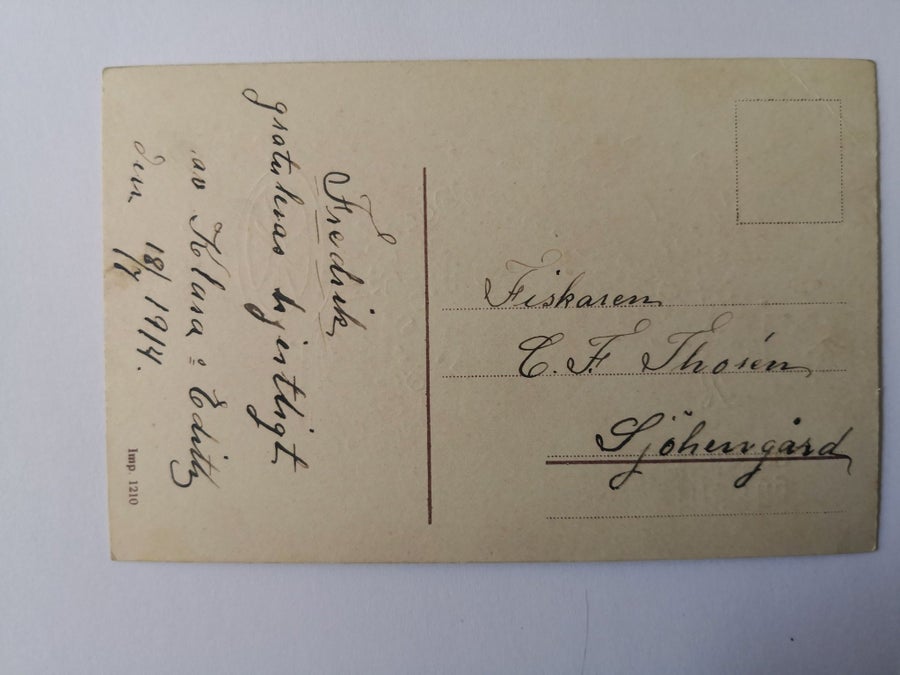 Fredrik
gratuleras hjertligt
av Klara o Edith
den 18/7 1914.
Fiskaren
C. F. Thorén
Sjöhemgård
Imp 1210